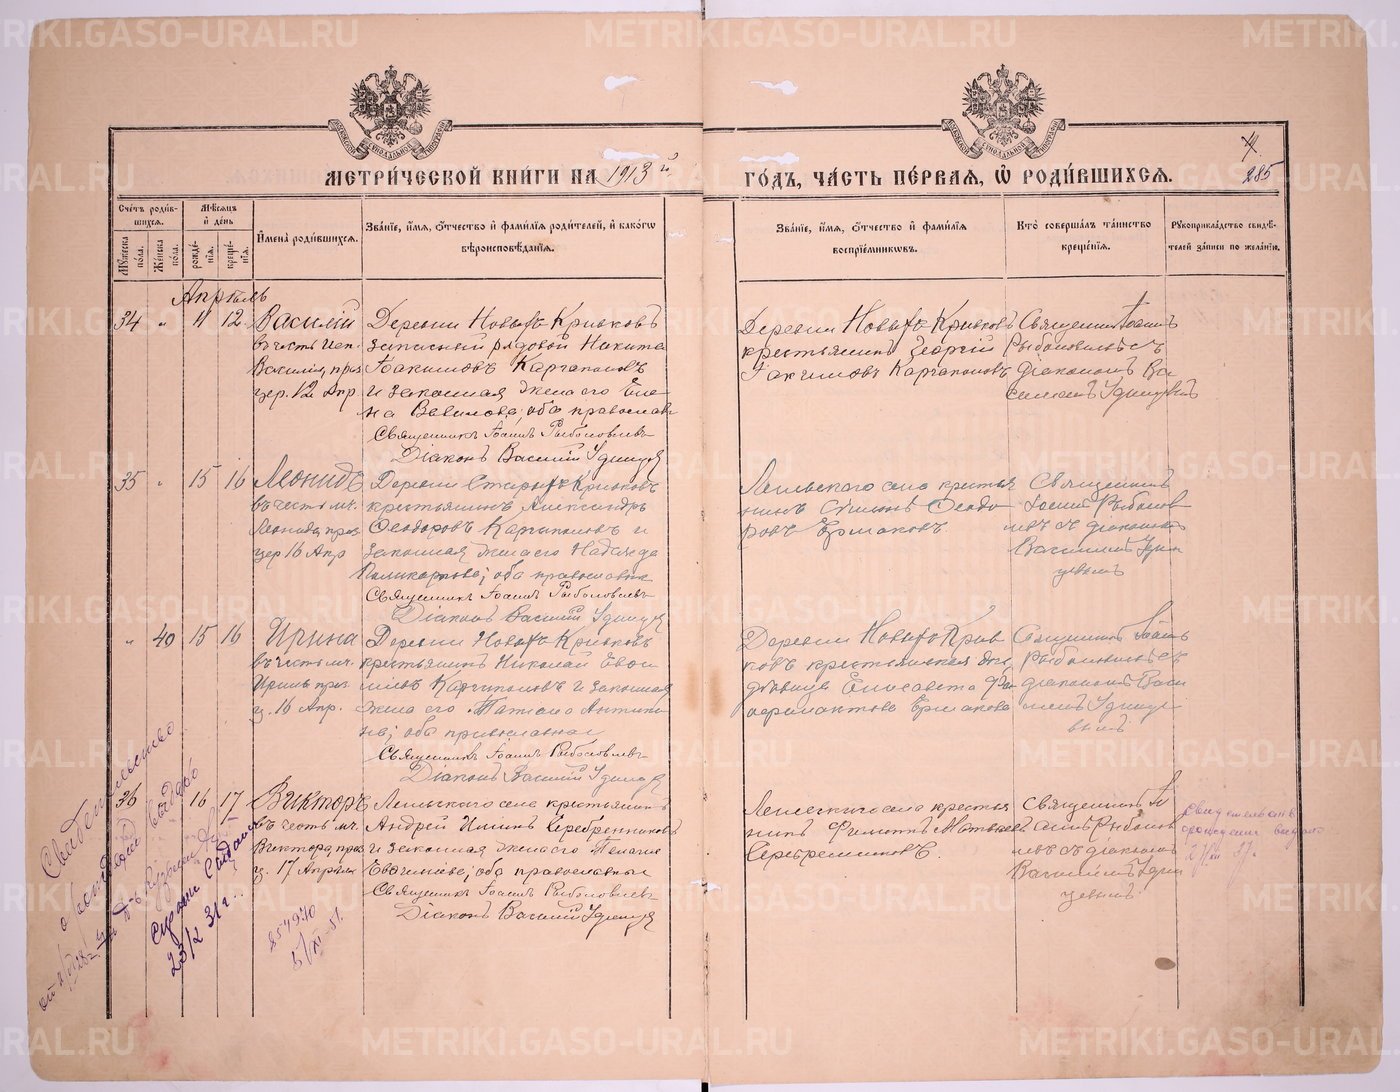 МЕТРИ́ЧЕСКОЙ КНИ́ГИ НА 1913 й
ГО́ДЪ, ЧА́СТЬ ПЕ́РВАЯ, Ѡ РОДИ́ВШИХСЯ.
4
285
Сче́тъ роди́в-
шихся.
Му́жеска по́ла.
Же́нска по́ла.
Мѣ́сяцъ
и де́нь
рожде́-
нія.
креще́-
нія.
И́мена роди́вшихся.
Зва́ніе, и́мя, о́тчество и фами́лія роди́телей, и како́гѡ
вѣроисповѣ́данія.
Зва́ніе, и́мя, о́тчество и фами́лія
воспріе́мниковъ.
Кто̀ соверша́лъ та́инство
креще́нія.
Рукоприкла́дство свидѣ́-
телей за́писи по жела́нію.
Апрѣль
34 " 11 12 Василій
въ честь
Василія, праз
цер. 12 Апр
Деревни Новыхъ Кривковъ
запасный рядовой Никита
Іакимовъ Каргаполовъ
и законная жена его Еле
на Вавилова; оба православн
Священникъ Іоаннъ Рыболовлевъ
Діаконъ Василій Удинцев
Деревни Новыхъ Кривковъ
крестьянинъ Георгій
Іакимовъ Каргаполовъ
Священникъ Іоаннъ
Рыболовлевъ съ
діакономъ Ва
силіемъ Удинцевым
35 " 15 16 Леонидъ
въ честь мч.
Леонида, праз
цер 16 Апр
Деревни Старыхъ Кривковъ
крестьянинъ Александръ
Ѳеодоровъ Каргаполовъ и
законная жена его Надежда
Поликарпова; оба православны
Священникъ Іоаннъ Рыболовлевъ
Діаконъ Василій Удинцев
села крестья
нинъ Симеонъ Ѳеодо
ровъ Ермаковъ
Священникъ
Іоаннъ Рыболов
левъ съ діакономъ
Василіемъ Удин
цевымъ
" 40 15 16 Ирина
въ честь мч.
Ирины праз
ц. 16 Апр.
Деревни Новыхъ Кривковъ
крестьянинъ Николай Евфи
міевъ Каргаполовъ и законная
жена его Татіана Антипи
на; оба православны
Священникъ Іоаннъ Рыболовлевъ
Діаконъ Василій Удинцев
Деревни Новыхъ Крив
ковъ крестьянская
дѣвица Елисавета
Ермакова
Священникъ Іоаннъ
Рыболовлевъ съ
діакономъ Васи
ліемъ Удинце
вымъ
36 16 17 Викторъ
въ честь мч.
Виктора, праз
ц. 17 Апрѣля
села крестьянинъ
Андрей Серебренниковъ
и законная жена его Пелагія
оба православны
Священникъ Іоаннъ Рыболовлевъ
Діаконъ Василій Удинцев
села крестья
нинъ Филиппъ Матвѣев
Серебренниковъ.
Священникъ Іо
аннъ Рыболов
левъ съ діакономъ
Василіемъ Удин
цевымъ
Свидетельство
о рождении выдано
Свидетельство
о рождении выдано
23/2 31 г.
854970
METRIKI.GASO-URAL.RU